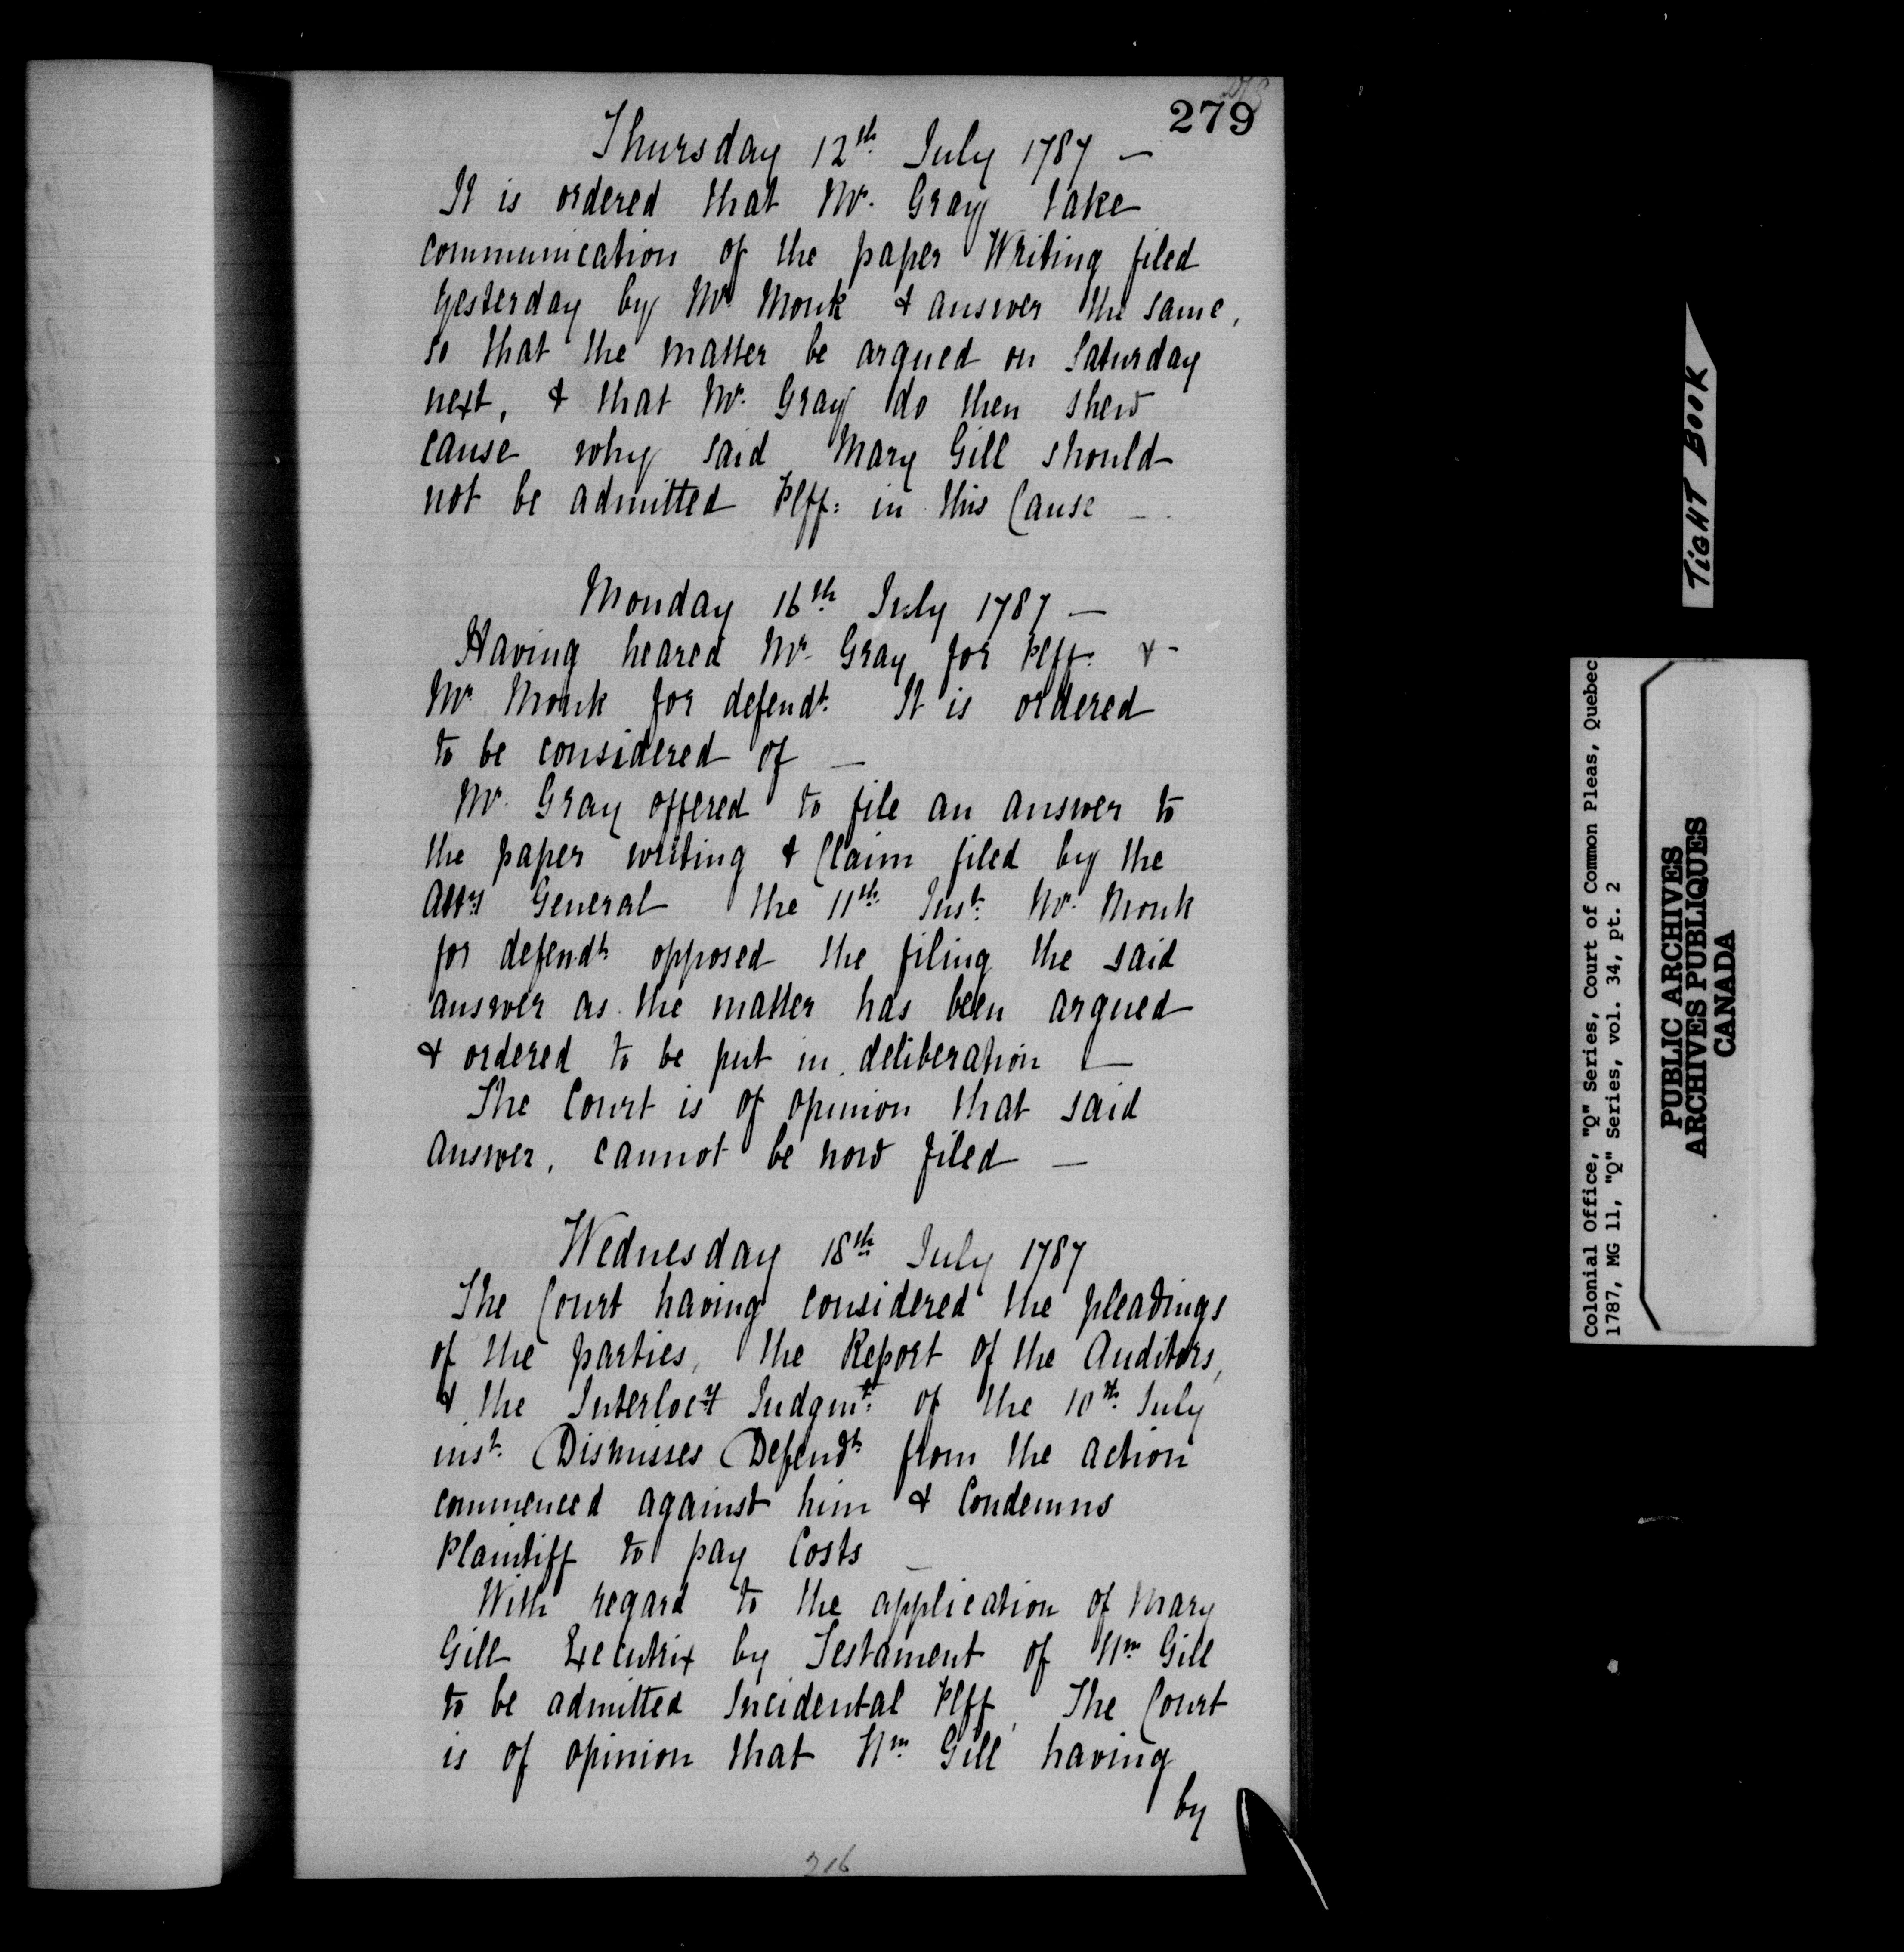 279
Thursday 12th July 1787 —
It is ordered that Mr. Gray take
communication of the paper Writing filed
yesterday by Mr Monk & answer the same,
so that the matter be argued on Saturday
next, & that Mr. Gray do then shew
cause why said Mary Gill should
not be admitted Plff: in this Cause —
Monday 16th July 1787 —
Having heared Mr. Gray for Plff. &
Mr Monk for defendt. It is ordered
to be considered of —
Mr. Gray offered to file an answer to
the paper writing & Claim filed by the
Atty General the 11th Inst. Mr. Monk
for defendt opposed the filing the said
answer as the matter has been argued
& ordered to be put in deliberation —
The Court is of opinion that said
answer, cannot be now filed —
Wednesday 18th July 1787
The Court having considered the pleadings
of the parties, the Report of the Auditors,
& the Interlocy Judgmt: of the 10th July
inst. Dismisses Defendt from the action
commenced against him & Condemns
Plaintiff to pay Costs —
With regard to the application of Mary
Gill Executrix by Testament of Wm Gill
to be admitted Incidental Plff, The Court
is of opinion that Wm Gill having
by
TIGHT BOOK
Colonial Office, "Q" Series, Court of Common Pleas, Quebec
1787, MG 11, "Q" Series, vol. 34, pt. 2
PUBLIC ARCHIVES
ARCHIVES PUBLIQUES
CANADA